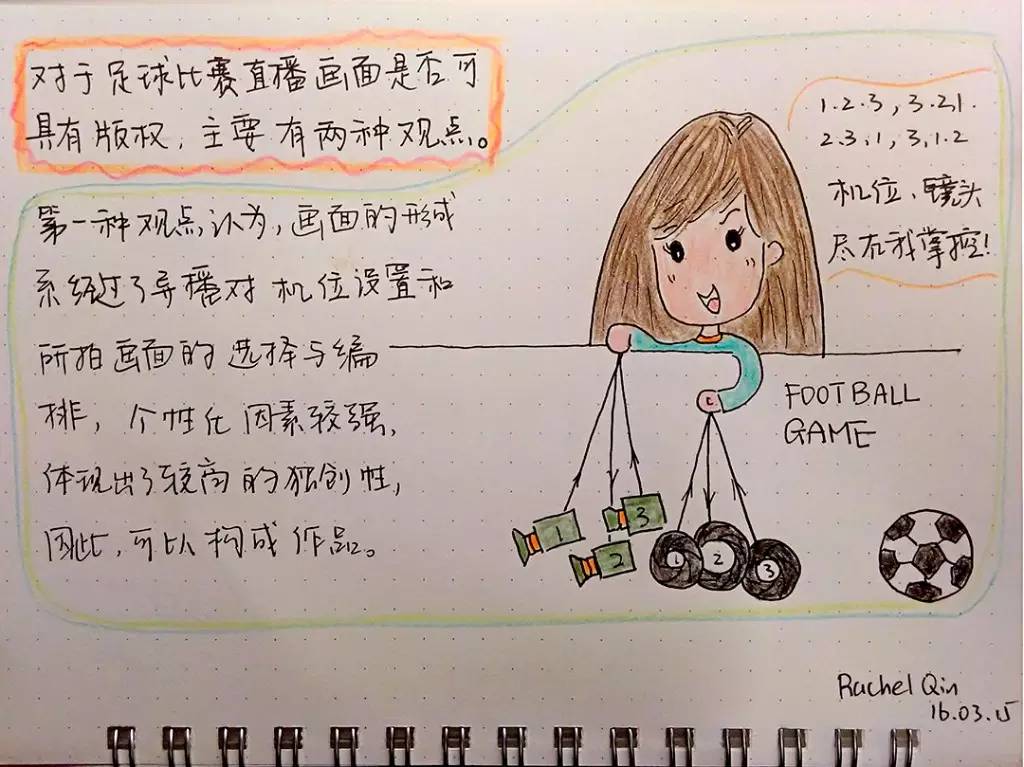 对于足球比赛直播画面是否可
具有版权，主要有两种观点。
第一种观点认为，画面的形成
系经过了导播对机位设置和
所拍画面的选择与编
排，个性化因素较强，
体现出了较高的独创性，
因此，可以构成作品。
1.2.3，3.2.1.
2.3.1，3.1.2
机位、镜头
尽在我掌控！
FOOTBALL
GAME
1
2
3
1
2
3
Rachel Qin
16.03.15